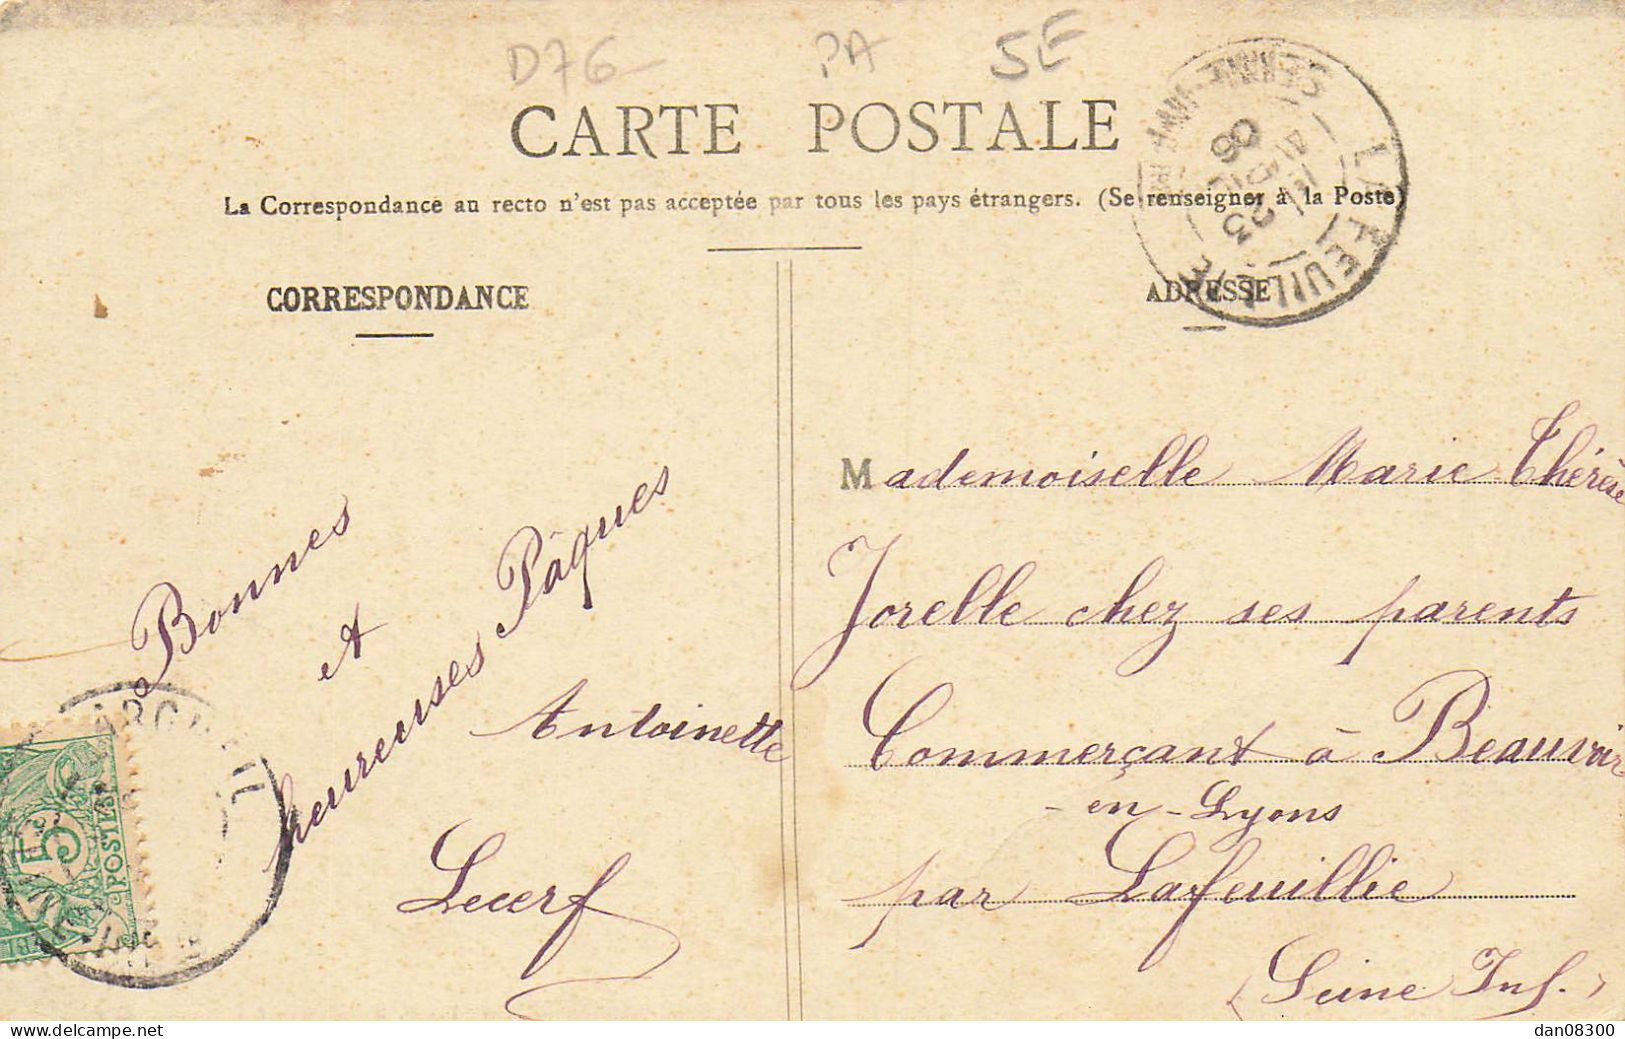 D76 PA SE
CARTE POSTALE
La Correspondance au recto n'est pas acceptée par tous les pays étrangers. (Se renseigner à la Poste)
CORRESPONDANCE
Bonnes
et
heureuses Pâques
Antoinette
Lecerf
5
POSTES
ADRESSE
LA FEUILLIE
SEINE-INFRE
Mademoiselle Marie Thérèse
Jorelle chez ses parents
Commerçant à Beauvoir
-en-Lyons
par Lafeuillie
(Seine Inf.)
delcampe.net
dan08300